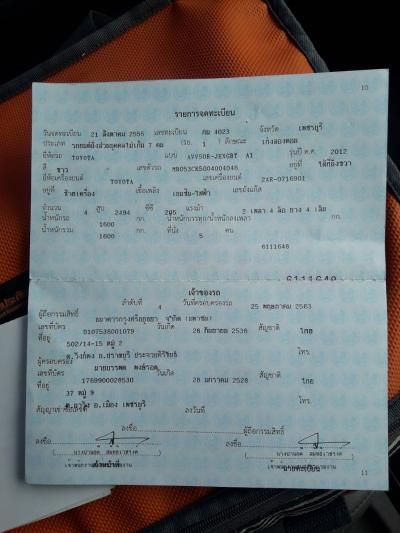 10
รายการจดทะเบียน
วันจดทะเบียน 21 สิงหาคม 2555 เลขทะเบียน กม 4023 จังหวัด เพชรบุรี
ประเภท รถยนต์นั่งส่วนบุคคลไม่เกิน 7 คน (รย. 1 ) ลักษณะ เก๋งสองตอน
ยี่ห้อรถ TOYOTA แบบ รุ่นปี ค.ศ. 2012
สี ขาว เลขตัวรถ MR053CK5004004045 อยู่ที่
ยี่ห้อเครื่องยนต์ TOYOTA เลขเครื่องยนต์ 2AR-0716901
อยู่ที่ ซ้ายเครื่อง เชื้อเพลิง เบนซิน-ไฟฟ้า เลขถังแก๊ส
จำนวน 4 สูบ 2494 ซีซี แรงม้า 2 เพลา 4 ล้อ ยาง 4 เส้น
น้ำหนักรถ 1600 กก. น้ำหนักบรรทุก/น้ำหนักลงเพลา กก.
น้ำหนักรวม 1600 กก. ที่นั่ง 5 คน
6111648
6111649
เจ้าของรถ
ลำดับที่ 4 วันที่ครอบครองรถ 25 พฤษภาคม 2563
ผู้ถือกรรมสิทธิ์ ธนาคารกรุงศรีอยุธยา จำกัด (มหาชน)
เลขที่บัตร 0107536001079 วันเกิด 28 กันยายน 2536 สัญชาติ ไทย
ที่อยู่ 502/14-15 หมู่ 2
โทร.
ผู้ครอบครอง
เลขที่บัตร 1769900028530 วันเกิด 28 มกราคม 2528 สัญชาติ ไทย
ที่อยู่ 37 หมู่ 9
อ.เมือง เพชรบุรี โทร.
สัญญาเช่าซื้อเลขที่ ลงวันที่
ลงชื่อ ผู้ถือกรรมสิทธิ์
ลงชื่อ ลงชื่อ
นายทะเบียน
11